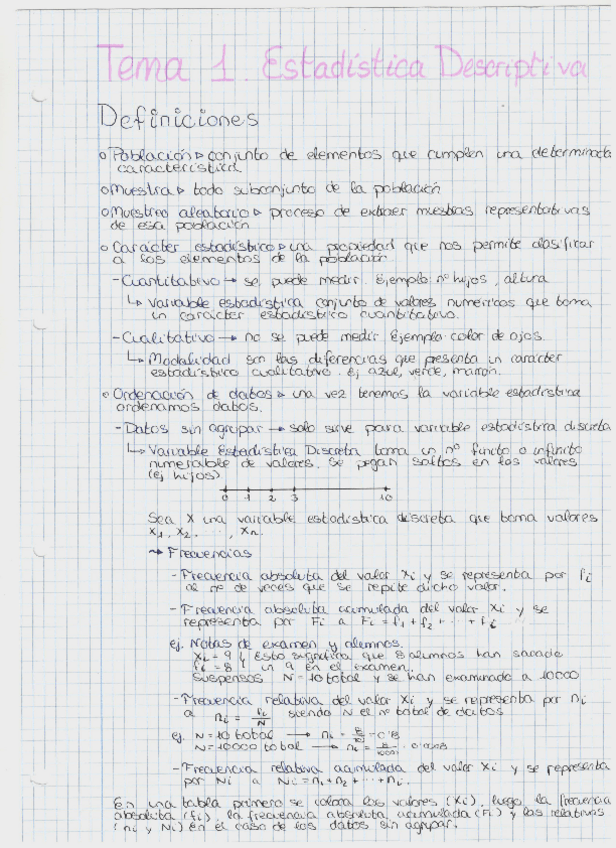 Tema 1. Estadística Descriptiva
Definiciones
o Población ▹ conjunto de elementos que cumplen una determinada
característica
o Muestra ▹ todo subconjunto de la población
o Muestreo aleatorio ▹ proceso de extraer muestras representativas
de esa población
o Carácter estadístico ▹ una propiedad que nos permite clasificar
a los elementos de la población.
- Cuantitativo → se puede medir. Ejemplo: nº hijos, altura
↳ Variable estadística conjunto de valores numéricos que toma
un carácter estadístico cuantitativo.
- Cualitativo → no se puede medir Ejemplo: color de ojos.
↳ Modalidad son las diferencias que presenta un carácter
estadístico cualitativo. ej azul, verde, marrón.
o Ordenación de datos ▹ una vez tenemos la variable estadística
ordenamos datos.
- Datos sin agrupar → solo sirve para variable estadística discreta
↳ Variable Estadística Discreta toma un nº finito o infinito
numerable de valores. Se pegan saltos en los valores
(ej hijos)
0 1 2 3 10
Sea X una variable estadística discreta que toma valores
x1, x2, ..., xn.
⇝ Frecuencias
- Frecuencia absoluta del valor xi y se representa por fi
al nº de veces que se repite dicho valor.
- Frecuencia absoluta acumulada del valor xi y se
representa por Fi a Fi = f1 + f2 + ... + fi
ej. Notas de examen y alumnos.
xi = 9 } Esto significa que 8 alumnos han sacado
fi = 8 } un 9 en el examen.
Suspensos N = 10 total y se han examinado a 10000
- Frecuencia relativa del valor xi y se representa por ni
a ni = fi/N siendo N el nº total de datos
ej. N = 10 total → ni = 8/10 = 0'8
N = 10000 total → ni =
- Frecuencia relativa acumulada del valor xi y se representa
por Ni a Ni = n1 + n2 + ... + ni.
En una tabla primero se coloca los valores (xi), luego la frecuencia
absoluta (fi), la frecuencia absoluta acumulada (Fi) y las relativas
(ni y Ni) en el caso de los datos sin agrupar.